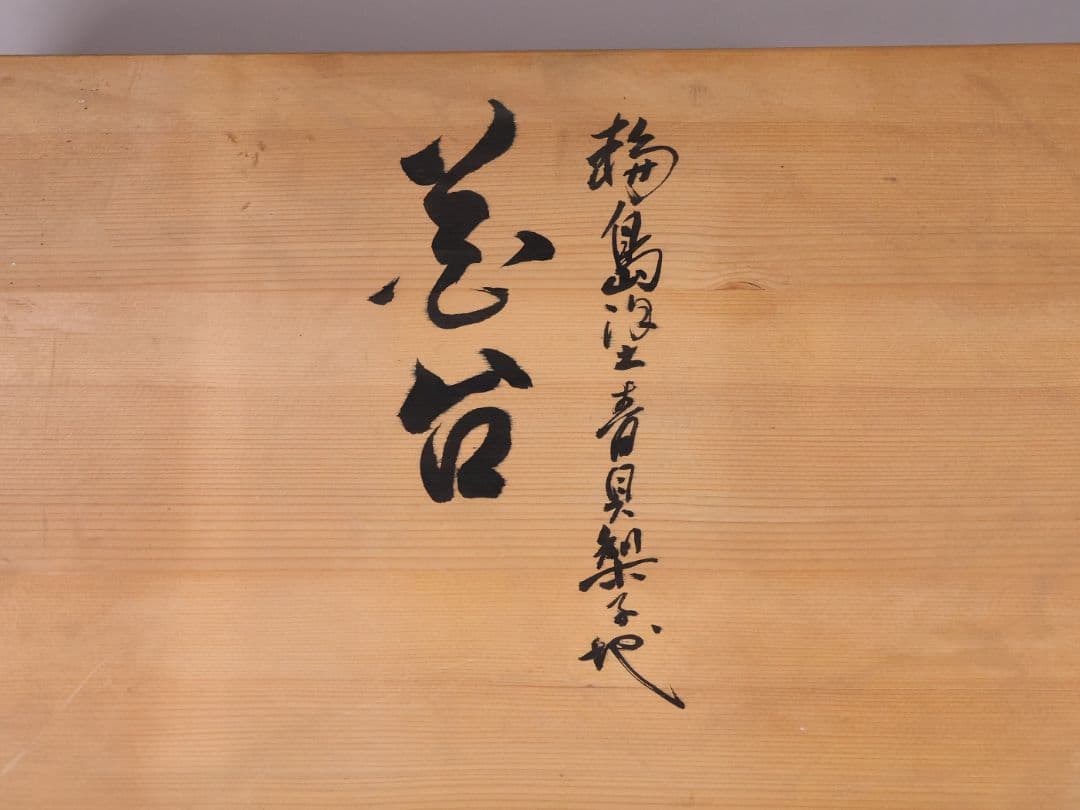 輪島塗青貝梨子地
花台